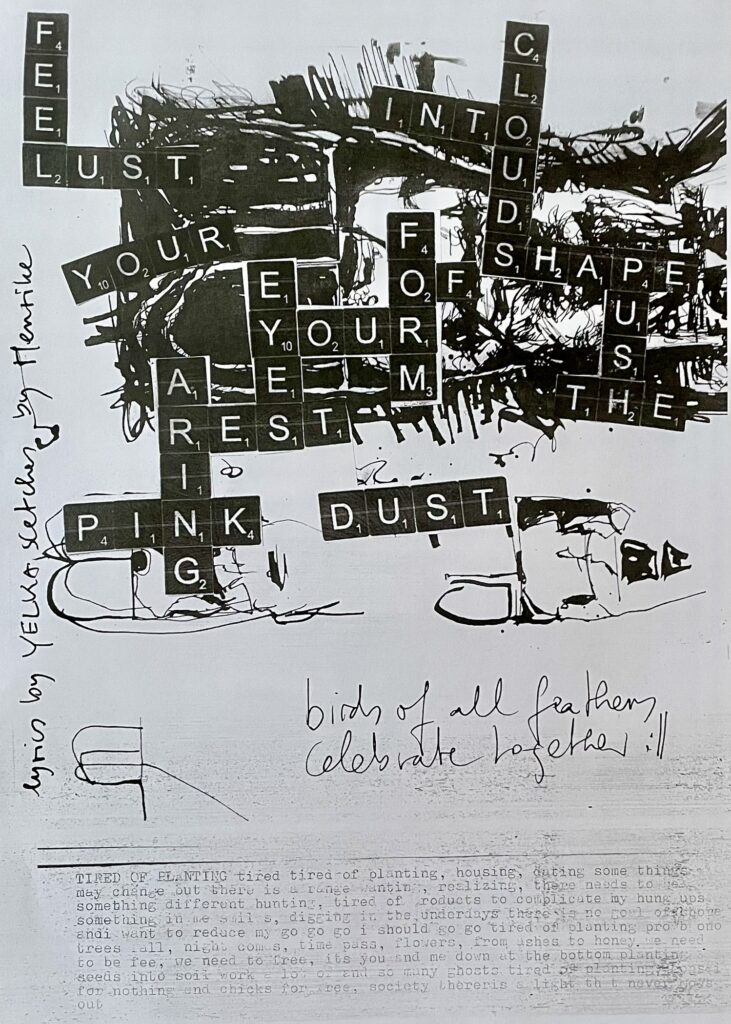 FEEL
LUST
INTO
CLOUDS
YOUR
SHAPE
FORM
OF
EYES
YOUR
PUSH
THE
ARING
REST
PINK DUST
lyrics by YELKA sketches by Henrike
birds of all feathers
celebrate together :||
TIRED OF PLANTING tired tired of planting, housing, dating some things
may change out there is a range wanting, realizing, there needs to
something different hunting, tired of products to complicate my hung ups
something in me smil s, digging in the underdays there is no goal of
andi want to reduce my go go go i should go go tired of planting pro bono
trees all, night com s, time pass, flowers, from ashes to honey we need
to be fee, we need to free, its you and me down at the bottom planting
seeds into soil work a lot of and so many ghosts tired of planting
for nothing and chicks for free, society thereris a light th t never goys
out